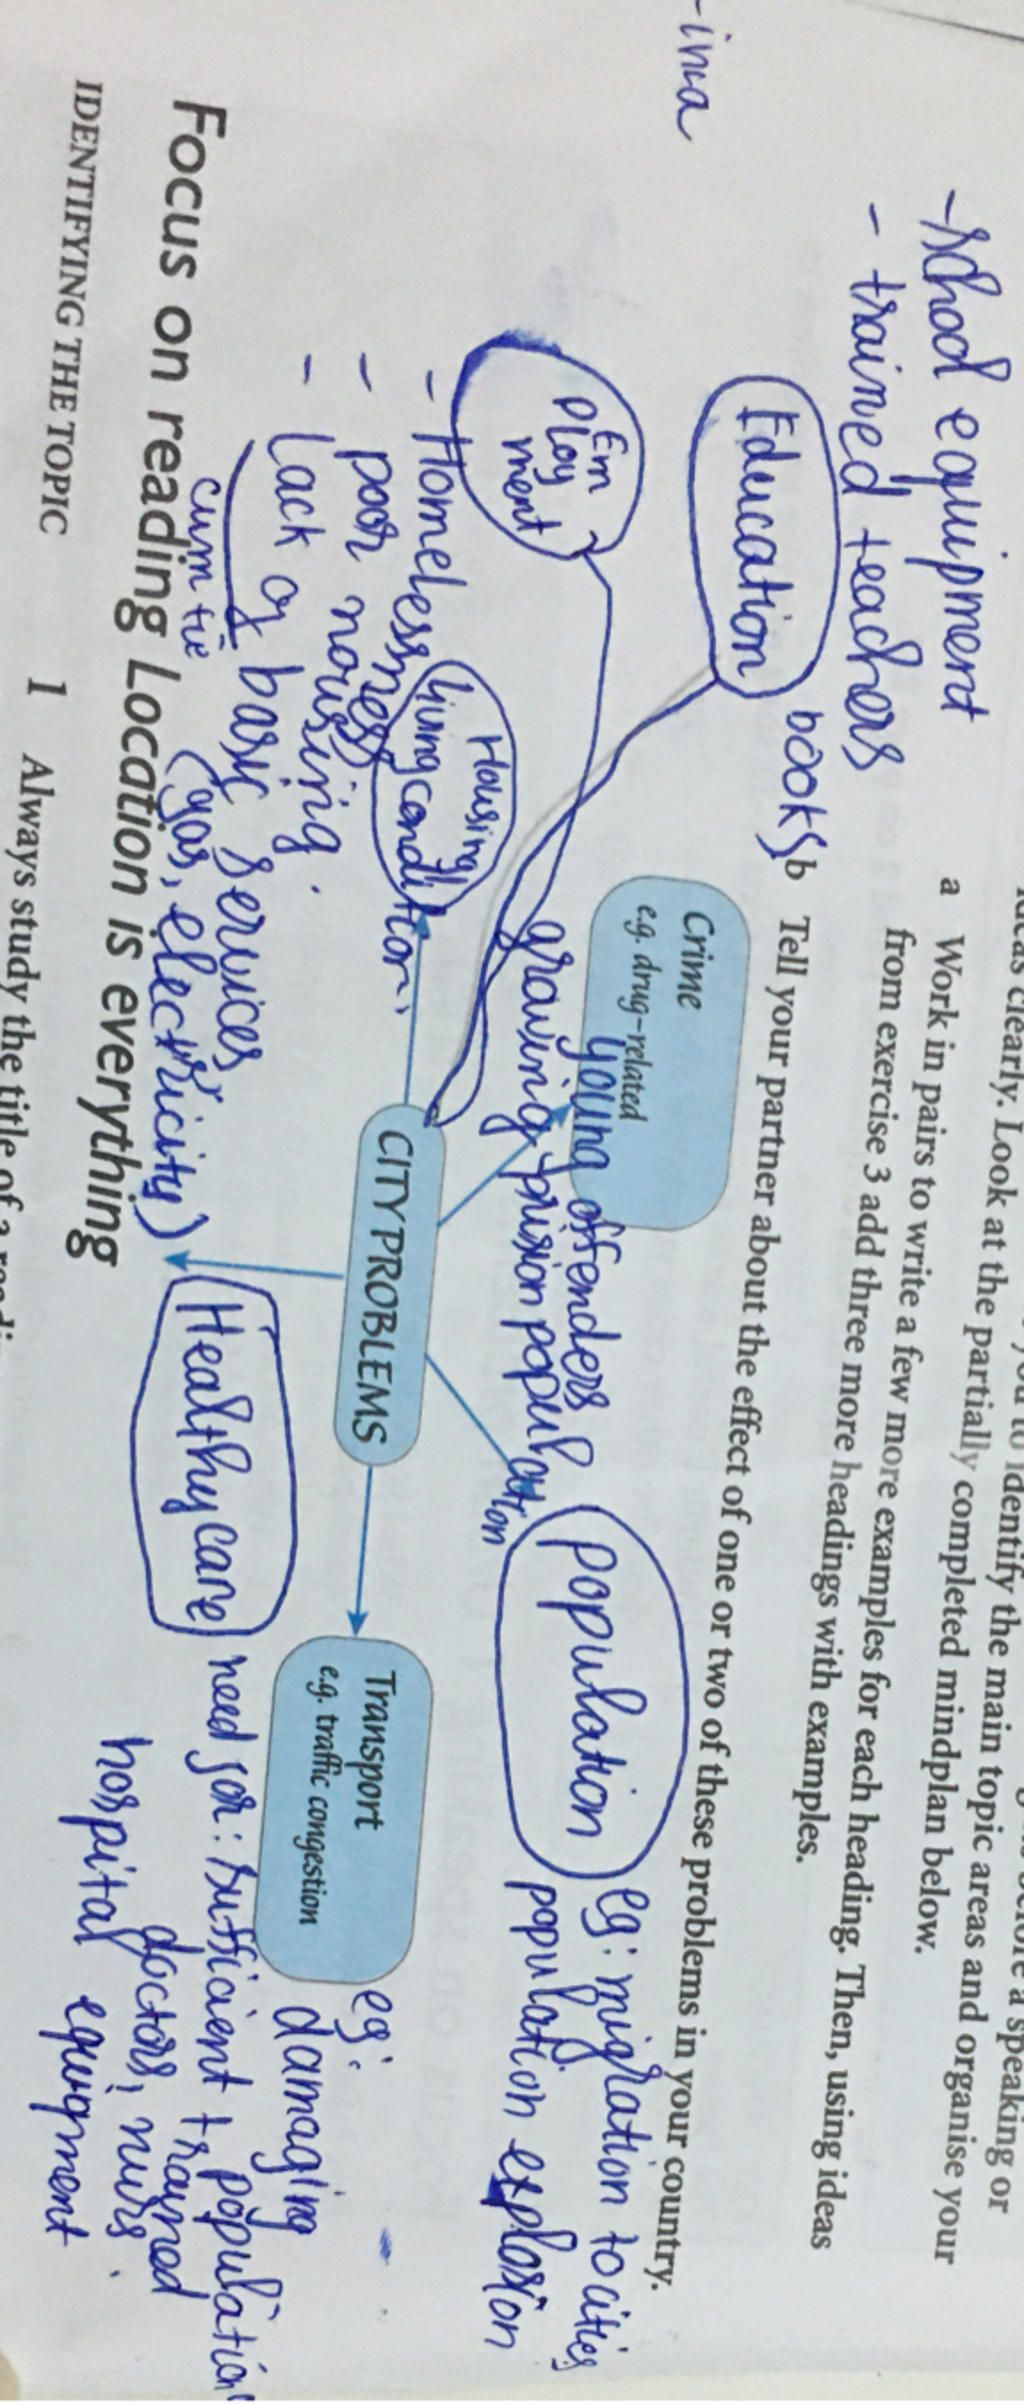 ideas clearly. Look at the partially completed mindplan below.
a Work in pairs to write a few more examples for each heading. Then, using ideas
from exercise 3 add three more headings with examples.
b Tell your partner about the effect of one or two of these problems in your country.
-school equipment
- trained teachers
books
Education
Em
ploy
ment
Crime
e.g. drug-related
young offenders
growing prision population
population
eg: migration to cities
population explosion
Housing
living condition
CITY PROBLEMS
Transport
e.g. traffic congestion
eg:
damaging
- Homelessness
- poor housing
- lack of basic services
(gas, electricity)
Healthy care
need for: sufficient trayned
doctors, nurs
hospital equipment
population
Focus on reading Location is everything
IDENTIFYING THE TOPIC
1 Always study the title of a